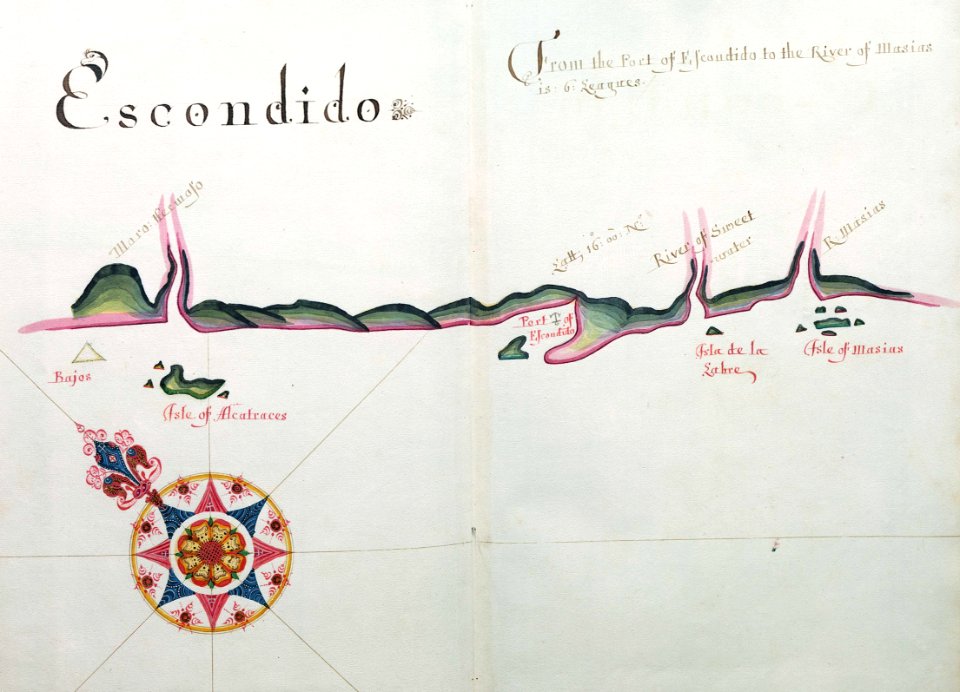 Escondido
From the Port of Escondido to the River of Masias
is: 6: Leagues.
Maro:
Latt, 16°: 00: N:
River of Sweet
water
R. Masias
Port of
Escondido
Bajos
Isle of Alcatraces
Isla de la
Labre
Isle of Masias